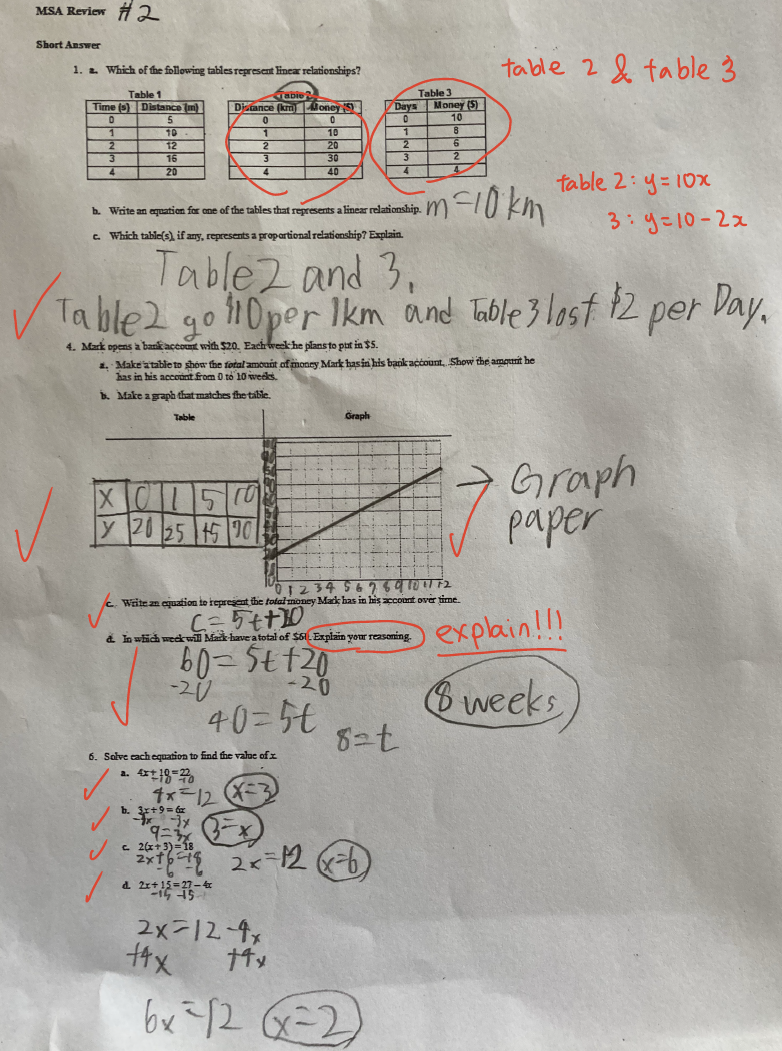 MSA Review #2
Short Answer
1. a. Which of the following tables represent linear relationships?
table 2 & table 3
Table 1
Time (s) Distance (m)
0 5
1 10
2 12
3 16
4 20
Table 2
Distance (km) Money ($)
0 0
1 10
2 20
3 30
4 40
Table 3
Days Money ($)
0 10
1 8
2 6
3 2
4 4
table 2: y=10x
3: y=10-2x
b. Write an equation for one of the tables that represents a linear relationship. m=10 km
c. Which table(s), if any, represents a proportional relationship? Explain.
Table 2 and 3.
Table 2 go $10 per 1km and Table 3 lost $2 per Day.
4. Mark opens a bank account with $20. Each week he plans to put in $5.
a. Make a table to show the total amount of money Mark has in his bank account. Show the amount he
has in his account from 0 to 10 weeks.
b. Make a graph that matches the table.
Table Graph
X 0 1 5 10
y 20 25 45 70
0 1 2 3 4 5 6 7 8 9 10 11 12
→ Graph
paper
c. Write an equation to represent the total money Mark has in his account over time.
d. In which week will Mark have a total of $60. Explain your reasoning.
explain!!!
60=5t+20
-20 -20
40=5t
8=t
8 weeks
6. Solve each equation to find the value of x
a. 4x+10=22
-10 -10
4x=12 x=3
b. 3x+9=6x
-3x -3x
9=3x 3=x
c. 2(x+3)=18
2x+6=18
-6 -6
2x=12 x=6
d. 2x+15=27-4x
-15 -15
2x=12-4x
+4x +4x
6x=12 x=2